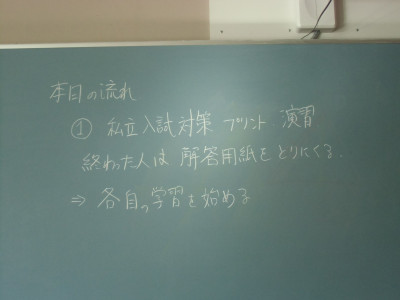 本日の流れ
① 私立入試対策 プリント 演習
終わった人は 解答用紙をとりにくる.
⇒ 各自の学習を始める